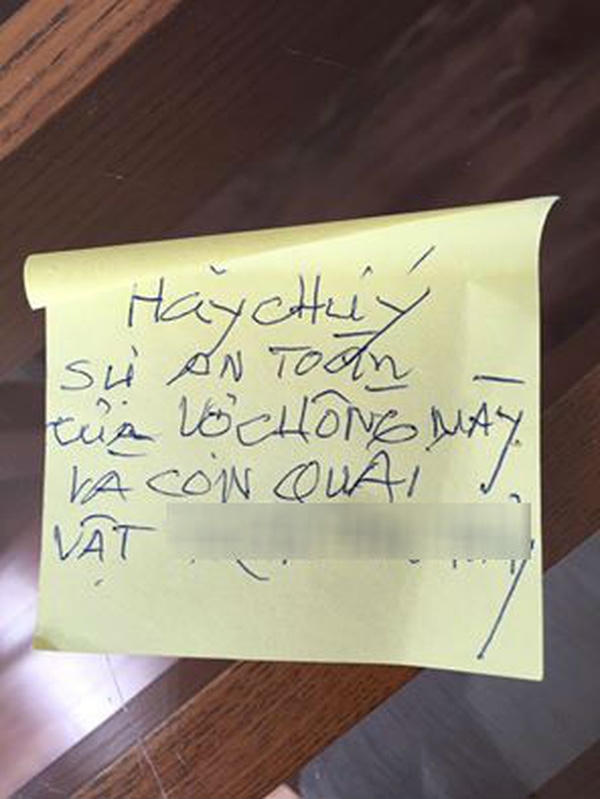 Hãy CHÚ Ý
SỰ AN TOÀN
CỦA VỢ CHỒNG MÀY
VÀ CON QUÁI
VẬT